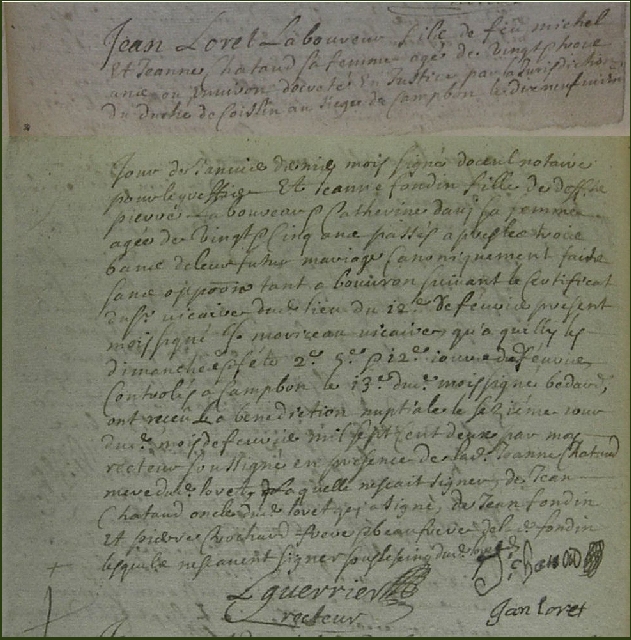 Jean Loret Laboureur fils de feu michel
Et Jeanne Chataud sa femme agé de Vingt trois
ans ou Environ decreté En Justice par la Jurisdiction
du Duché de Coislin au siege de Campbon le dix neufviesme
Jour de l'année mois signé notaire
pour le greffier Et Jeanne fondin fille de deffunt
pierre Catherine sa femme
agée de Vingt Cinq ans passés apres les trois
bans de leur futur mariage Canoniquement faits
sans opp̄on tant a bouvron suivant le Certificat
du sr vicaire dud. lieu du 12e de feuvrier present
mois signé morizeau vicaire, qu'a quilly les
dimanches et feste 2e 5e et 12e jours de feuvrier
Controlés a Campbon le 13e dud. mois signé bedard,
ont receu La benediction nuptiale le seizième jour
dud. mois de feuvrier mil sept cent deux par moy
recteur soussigné en presence de lad. Jeanne Chataud
mere dud. loret, Laquelle ne scait signer, de Jean
Chataud oncle dud. loret qui a signé, de Jean fondin
Et pierre frere et beaufrere de lad. fondin
lesquels ne scavent signer
Lguerrier
recteur
Jan loret